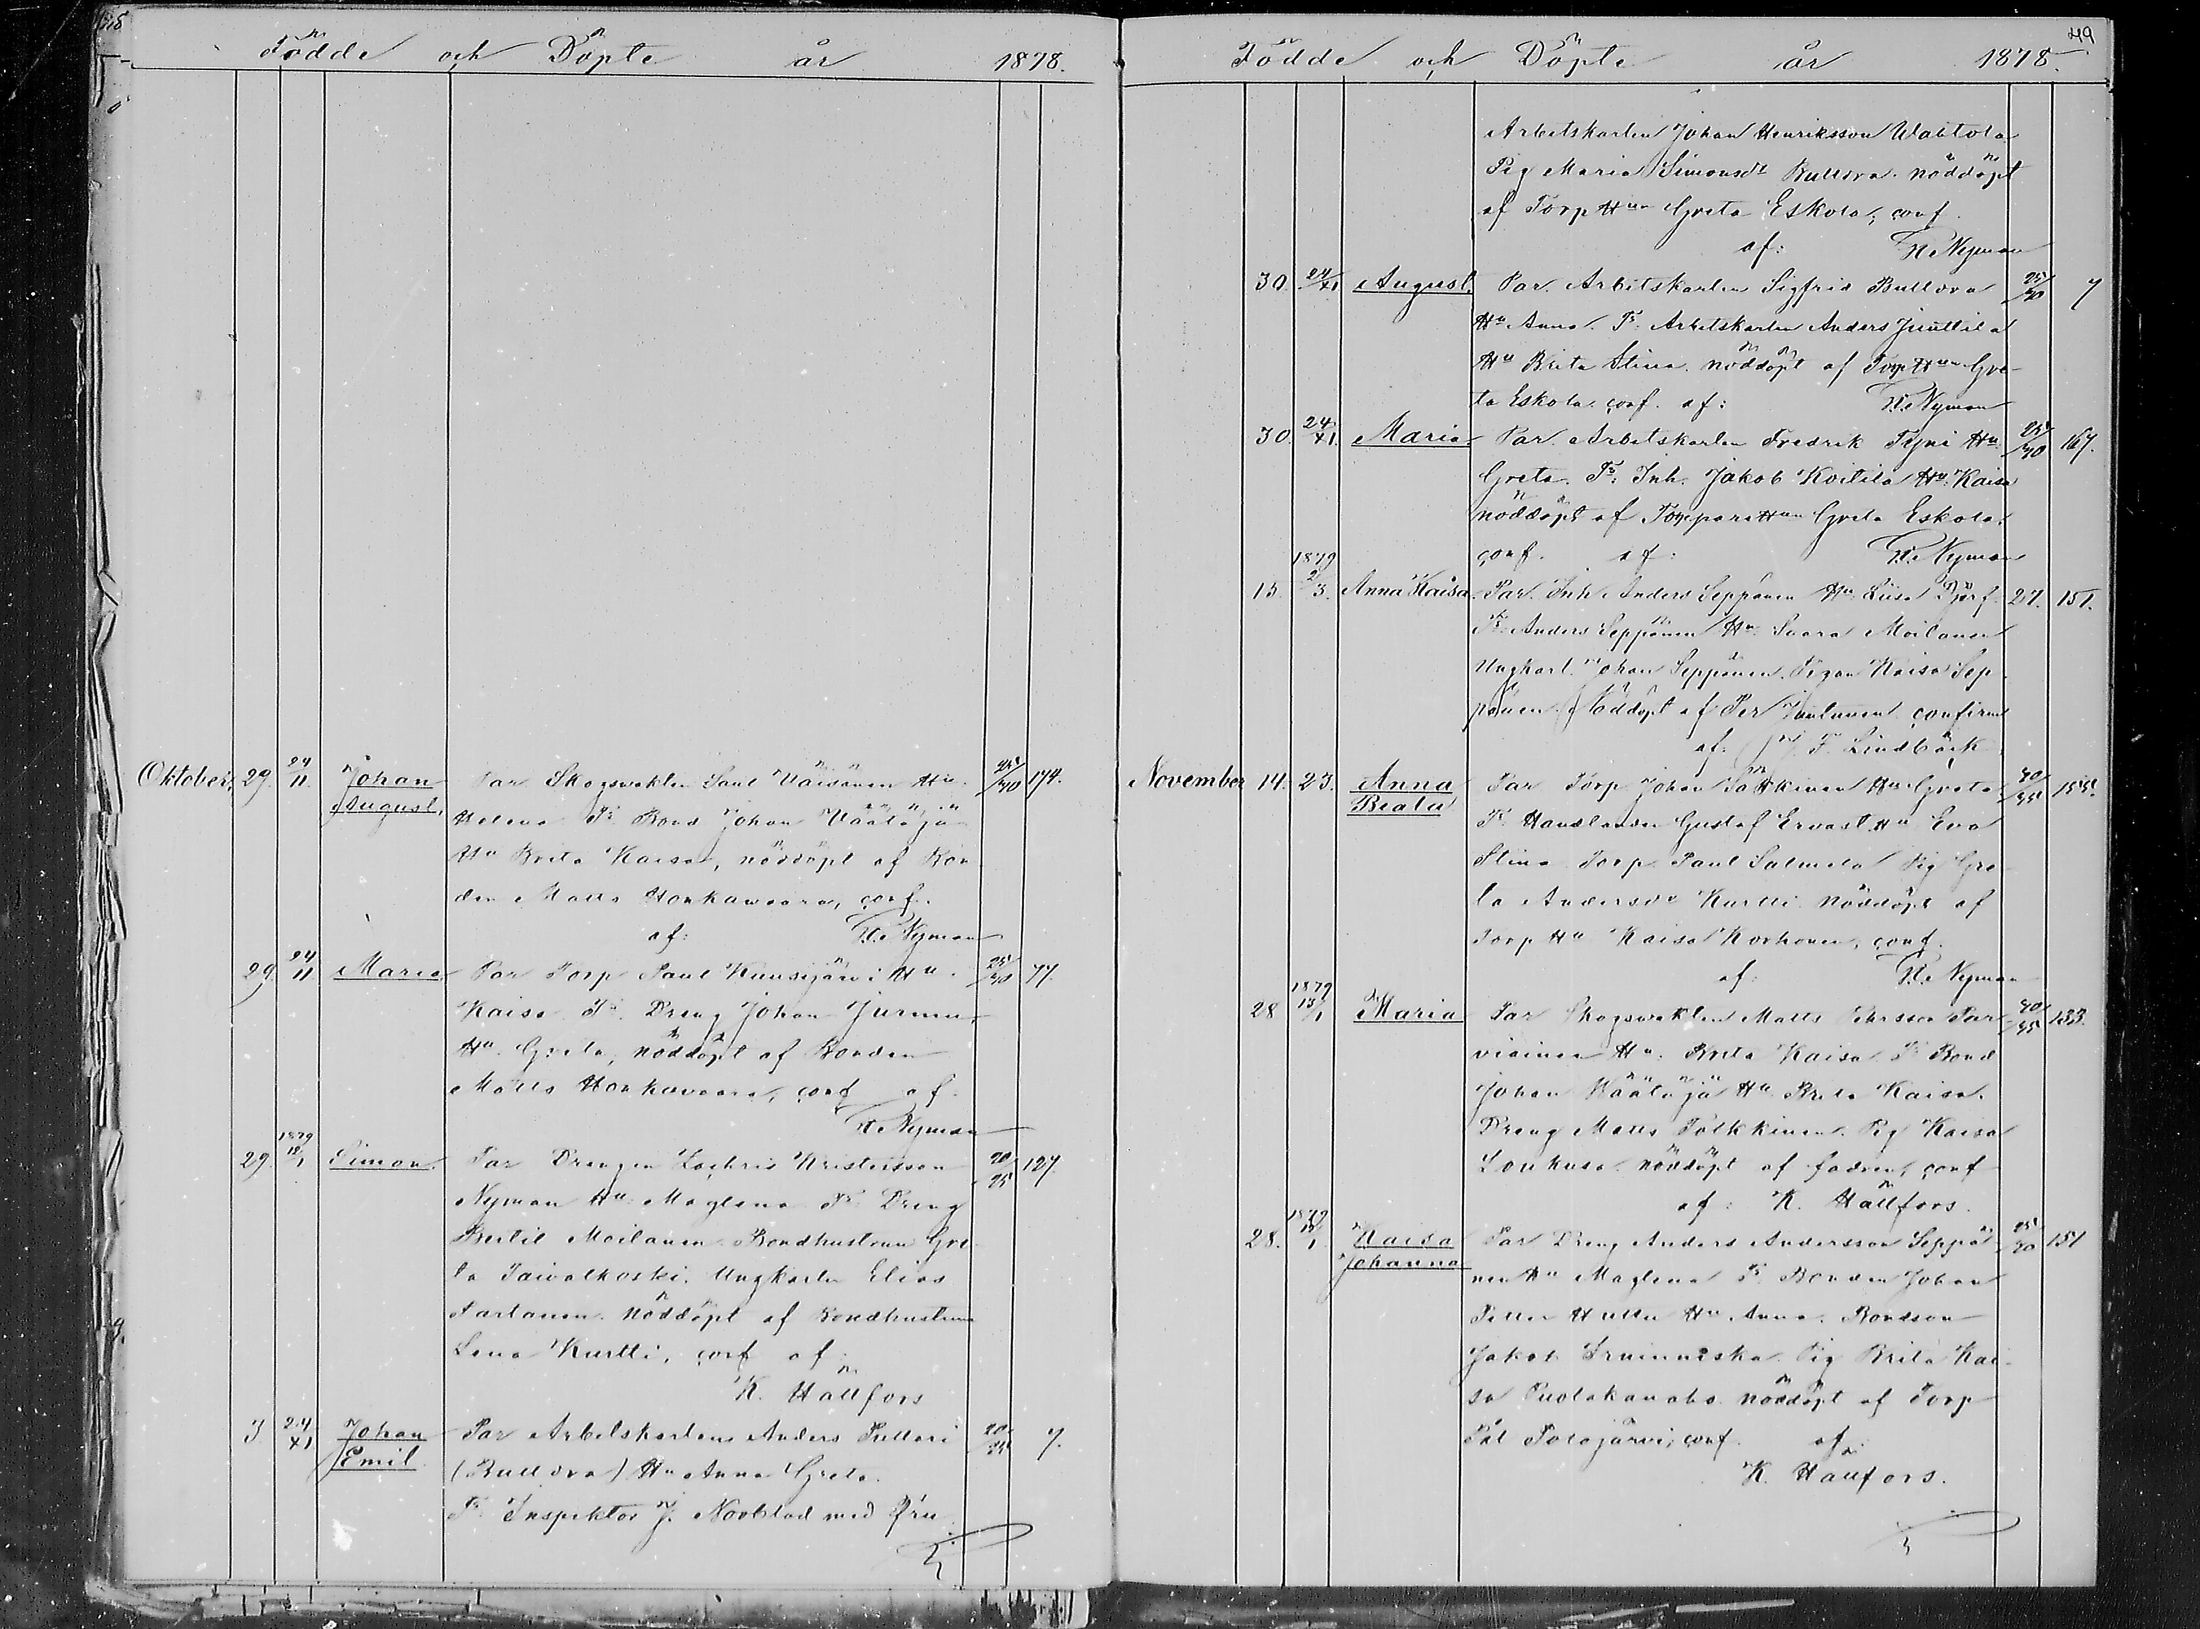 Födde och Döpte år 1878.
Oktober, 29. 24/11. Johan August. Par Skogswakten Paul Väisänen Hu. 25/30 174.
Helena Fr. Bond Johan Väätäjä
Hu Brita Kaisa, nöddöpt af Bon
den Matts Honkawaara, conf.
af: Fr. Nyman
29. 24/11 Maria Par Torp Paul Kuusijärvi Hu. 25/30 77.
Kaisa Fr. Dreng Johan Jurmu,
Hu. Greta, nöddöpt af Bonden
Matts Honkavaara, conf af.
Fr. Nyman
29. 1879 12/1 Simon. Par Drengen Zachris Kristersson 20/25 127.
Nyman Hu. Maglena Fr. Dreng
Bertil Moilanen Bondhustrun Gre
ta Taivalkoski. Ungkarlen Elias
Parlanen. Nöddöpt af Bondhustrun
Lena Kurtti, conf af
K. Hällfors
3 24/XI Johan Emil. Par Arbetskarlens Anders Pullari 20/25 7.
(Bulldra) Hu Anna Greta.
Fr. Inspektor J. Nordblad med Fru
49
Födde och Döpte år 1878.
Arbetskarlen Johan Henriksson Waltola
Pig Maria Simonsdr Bulldra. nöddöpt
af Torp Hun Greta Eskola, conf.
af: Fr. Nyman
30. 24/XI August. Par. Arbetskarlen Sigfrid Bulldra 25/30 7
Hu Anna. Fr. Arbetskarlen Anders Juuttila
Hu Brita Stina. nöddöpt af Torp Hun Gre-
ta Eskola. conf. af: Fr. Nyman
30. 24/XI. Maria Par. Arbetskarlen Fredrik Tyni Hu 25/30 167.
Greta. Fr. Inh. Jakob Koitila Hu. Kaisa
nöddöpt af Torpare Hun Greta Eskola.
conf. af: Fr. Nyman
15. 1879 2/3. Anna Kaisa. Par. Inh Anders Seppänen Hu. Liisa Björf. 27. 151.
Fr. Anders Seppänen Hu. Saara Moilanen
Ungkarl. Johan Seppänen. Pigan Kaisa Sep
pänen. Nöddöpt af Per Juntunen confirm
af: J. F. Lindbäck
November 14. 23. Anna Beata Par Torp Johan Särkinen Hu Greta 30/35 155.
Fr. Handlanden Gustaf Ervast Hu Eva
Stina Torp Paul Salmela Pig Gre
ta Andersdr Kurtti. Nöddöpt af
Torp Hu Kaisa Korhonen, conf.
af: Fr. Nyman
28 1879 12/1 Maria Par Skogswakten Matts Ehrsson Par 30/35 133.
viainen Hu. Brita Kaisa. Fr Bond
Johan Väätäjä Hu Brita Kaisa.
Dreng Matts Pölkkinen. Pig Kaisa
Loukusa. nöddöpt af fadren, conf
af: K. Hällfors.
28. 1879 12/1. Kaisa Johanna Par Dreng Anders Andersson Seppä 25/30 151
nen Hu Maglena Fr. Bonden Johan
Petter Huttu Hu Anna. Bondson
Jakob Iruinniska. Pig Brita Kai-
sa Puolakanaho nöddöpt af Torp
Pål Polojärvi, conf. af
K. Hällfors.